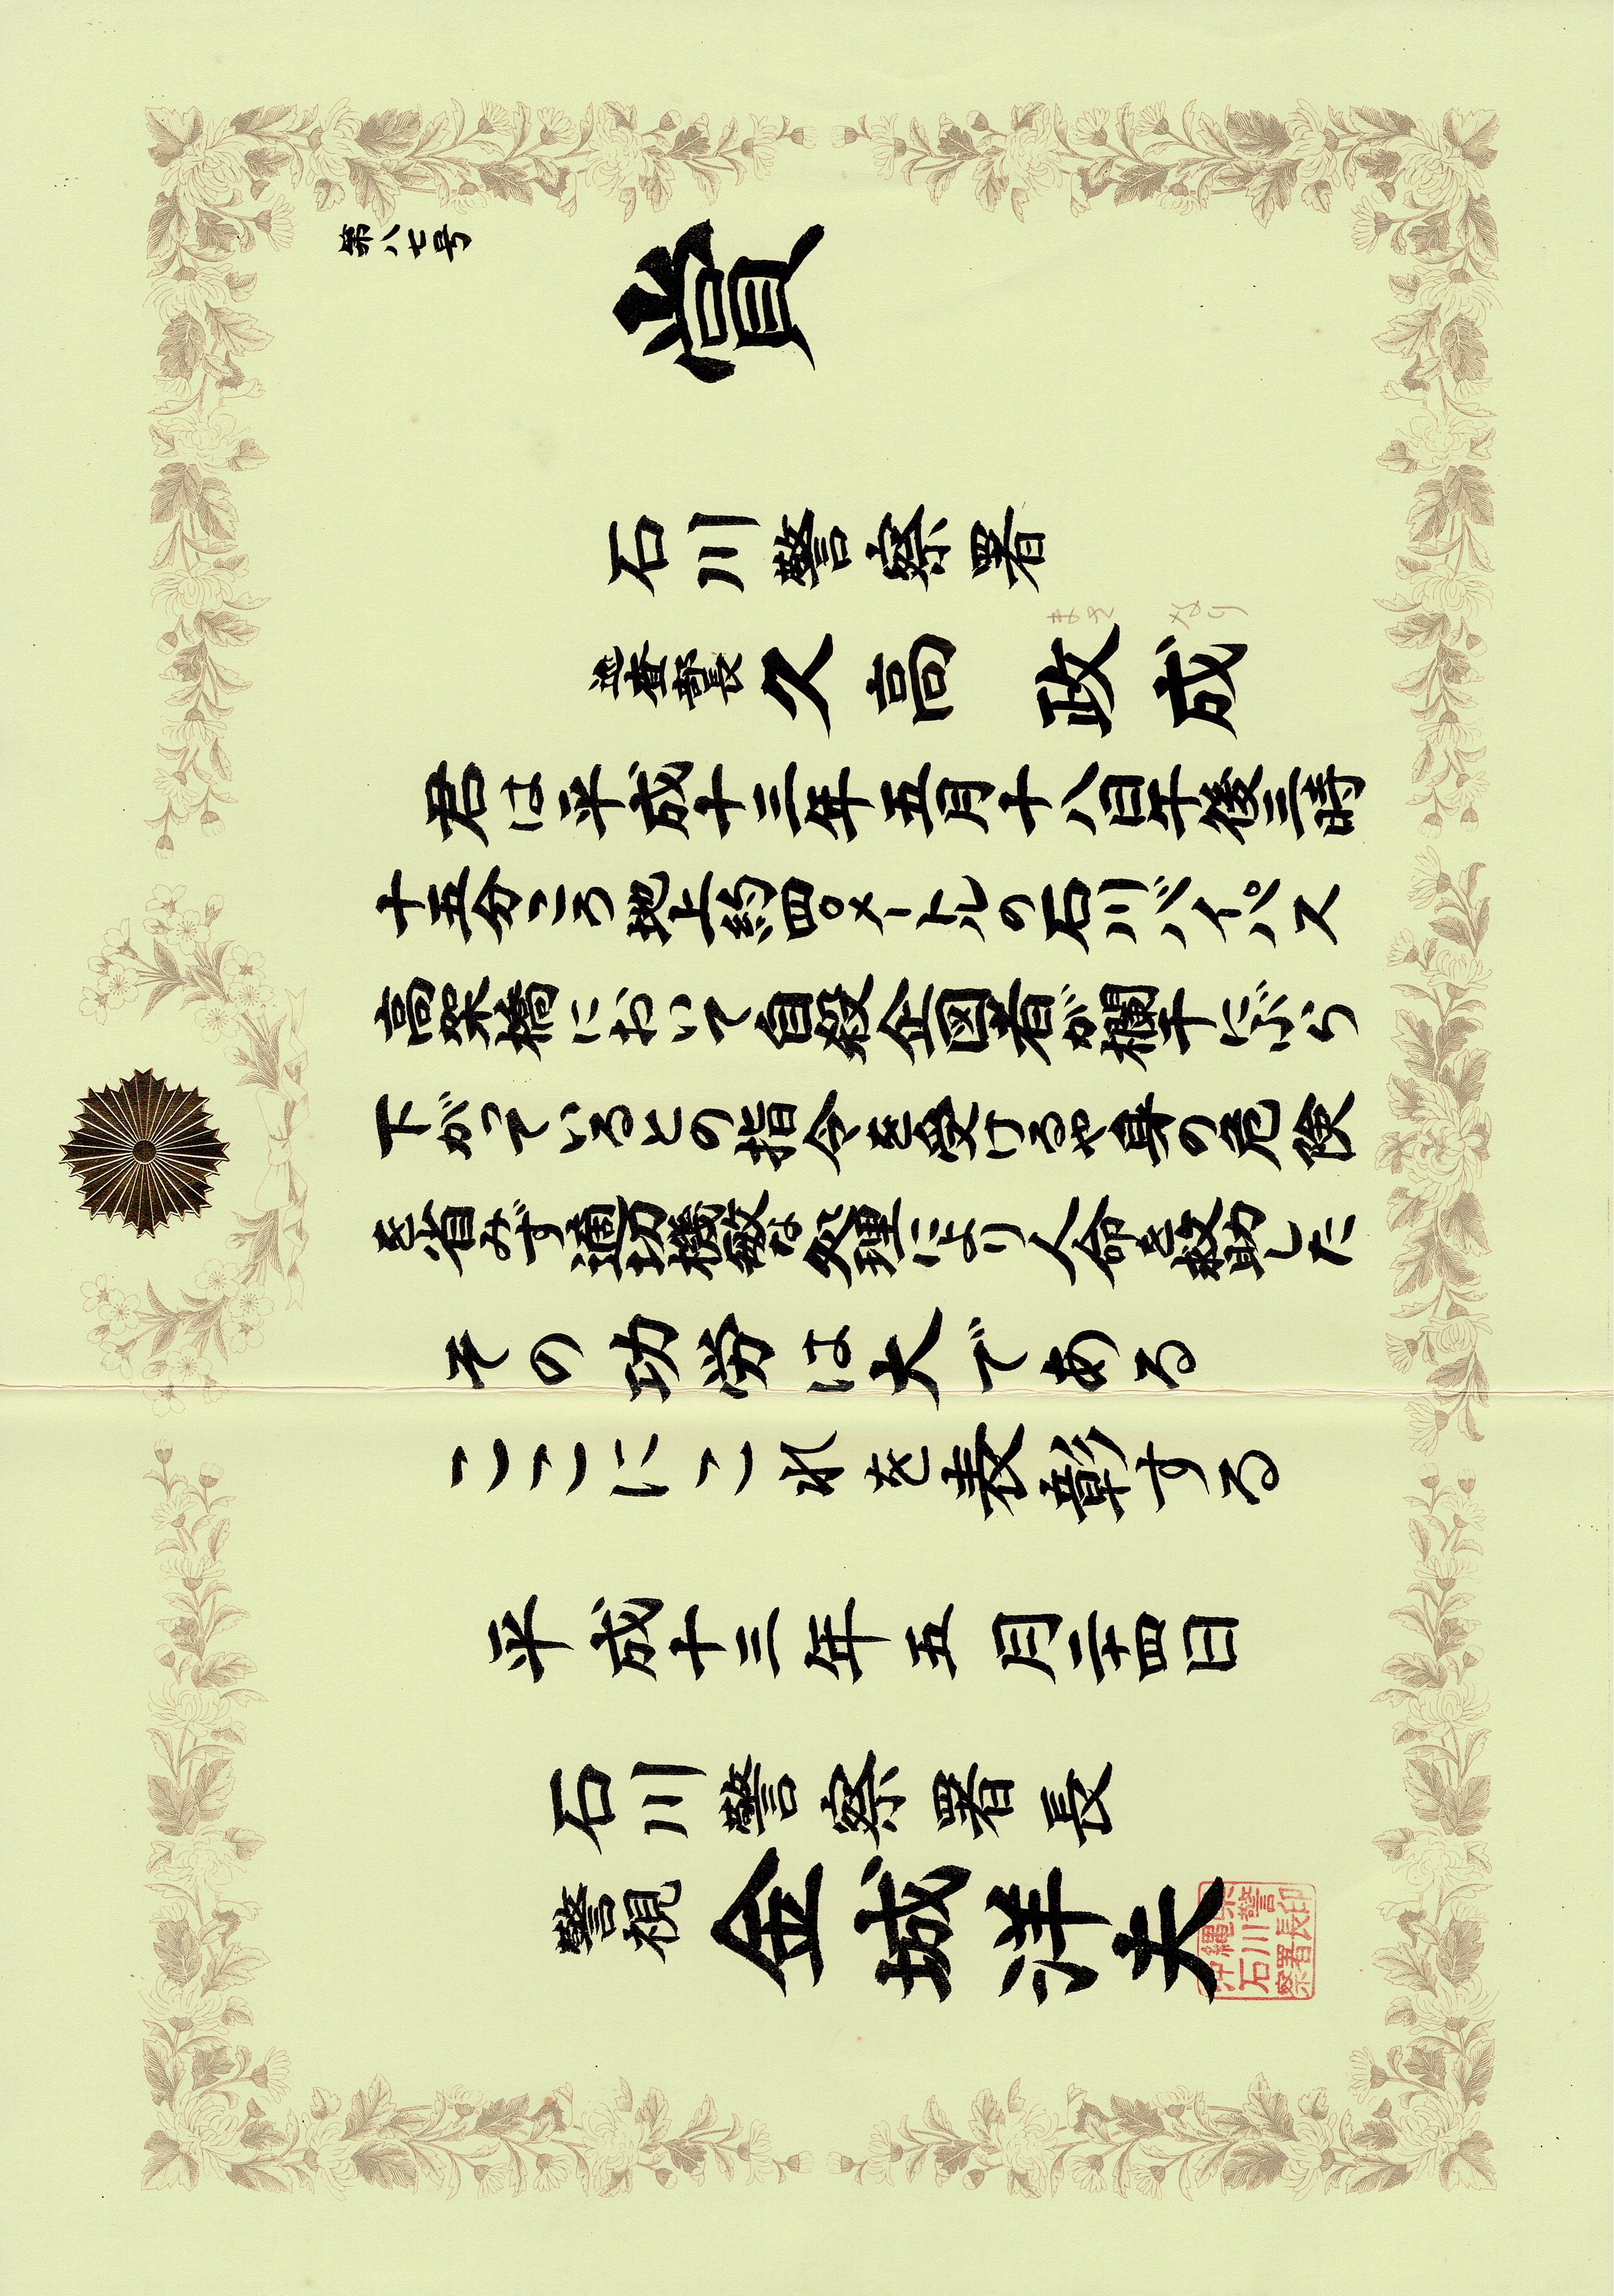 第八七号
賞
石川警察署
巡査部長 久高 政成
君は平成十三年五月十八日午後三時
十五分ころ地上約四〇メートルの石川バイパス
高架橋において自殺企図者が欄干にぶら
下がっているとの指令を受けるや身の危険
を省みず適切機敏な処理により人命を救助した
その功労は大である
ここにこれを表彰する
平成十三年五月二十四日
石川警察署長
警視 金城洋夫
沖縄県
石川警
察署長印